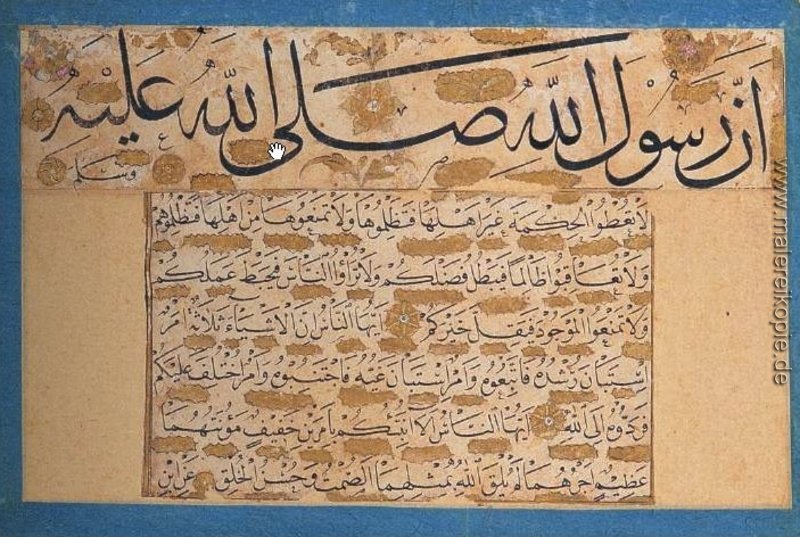 أن رسول الله صلى الله عليه
وسلم
لا تعطوا الحكمة غير اهلها فتظلموها ولا تمنعوها من اهلها فتظلموهم
ولا تعاقبوا ظالما فيبطل فضلكم ولا تراؤا الناس فيحبط عملكم
ولا تمنعوا الموجود فيقل خيركم ايها الناس ان الاشياء ثلاثة امر
استبان رشده فاتبعوه وامر استبان غيه فاجتنبوه وامر اختلف عليكم
فردوه الى الله ايها الناس الا انبئكم بامرين خفيف مؤنتهما
عظيم اجرهما لم يلق الله بمثلهما الصمت وحسن الخلق عن ابن
www.malereikopie.de